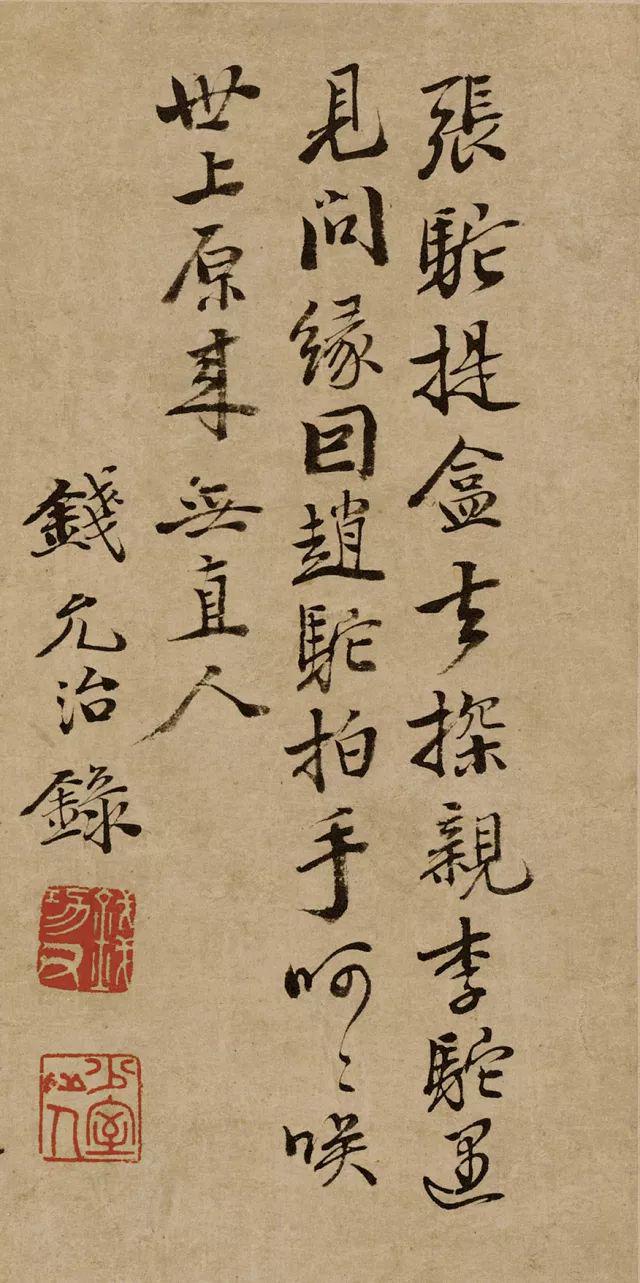 張駝提盒去探親李駝遇
見問緣因趙駝拍手呵〻咲
世上原来無直人
錢允治録